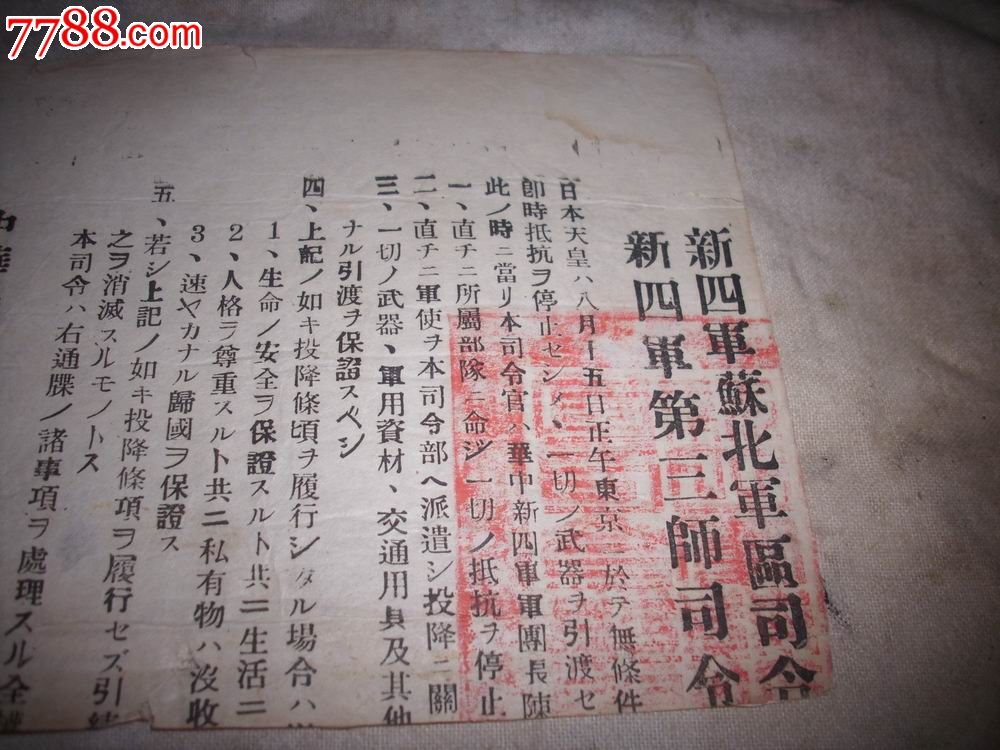 7788.com
新四軍蘇北軍區司令
新四軍第三師司令
日本天皇ハ八月十五日正午東京ニ於テ無條件
即時抵抗ヲ停止セシメ、一切ノ武器ヲ引渡セ
此ノ時ニ當リ本司令官ハ華中新四軍軍團長陳
一、直チニ所屬部隊ニ命ジ一切ノ抵抗ヲ停止
二、直チニ軍使ヲ本司令部ヘ派遣シ投降ニ關
三、一切ノ武器、軍用資材、交通用具及其他
ナル引渡ヲ保證スベシ
四、上記ノ如キ投降條項ヲ履行シタル場合ハ
1、生命ノ安全ヲ保證スルト共ニ生活ニ
2、人格ヲ尊重スルト共ニ私有物ハ沒收
3、速ヤカナル歸國ヲ保證ス
五、若シ上記ノ如キ投降條項ヲ履行セズ引續
之ヲ消滅スルモノトス
本司令ハ右通牒ノ諸事項ヲ處理スル全權
中華